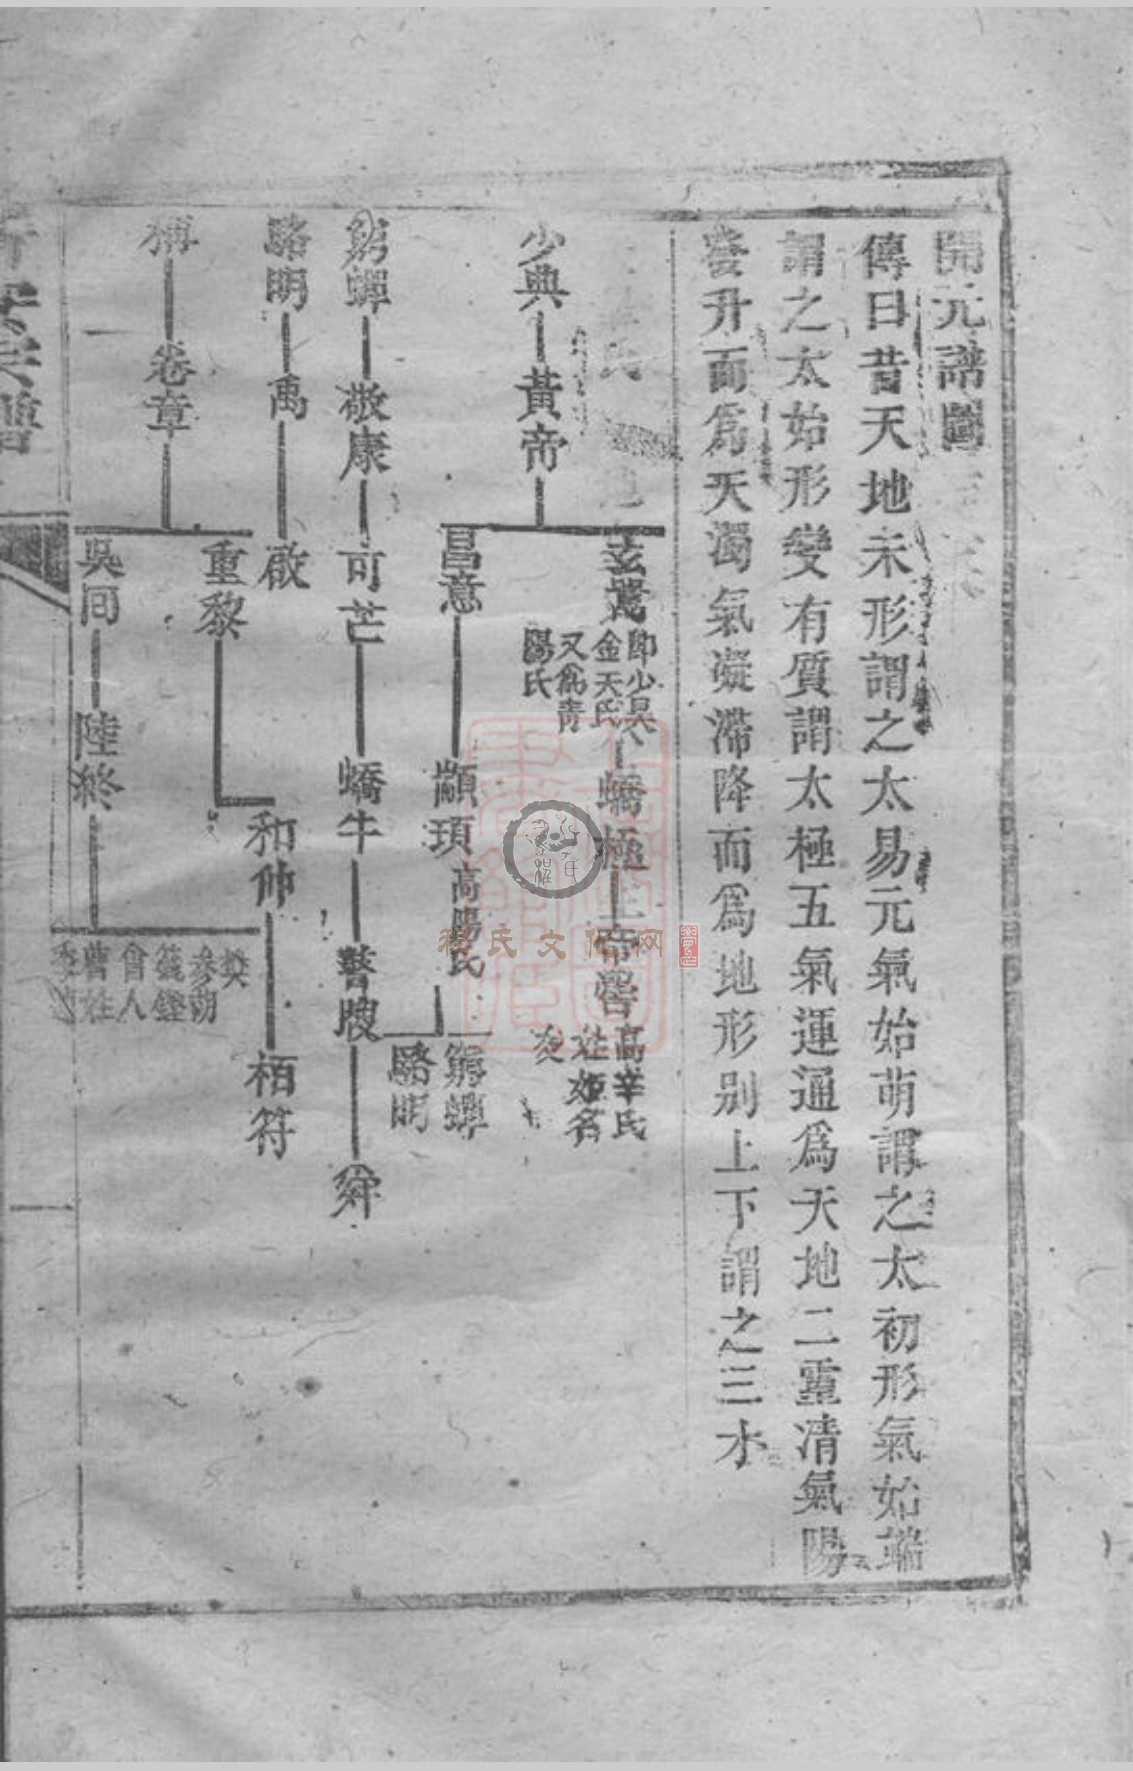 開元譜圖
傳曰昔天地未形謂之太易元氣始萌謂之太初形氣始端
謂之太始形變有質謂太極五氣運通爲天地二靈清氣陽
升而爲天濁氣凝滯降而爲地形別上下謂之三才
少典
黃帝
玄囂
即少昊
金天氏
又爲青
陽氏
蟜極
帝嚳
高辛氏
姓姬名
夋
昌意
顓頊
高陽氏
窮蟬
駱明
窮蟬
敬康
可芒
蟜牛
瞽瞍
舜
駱明
禹
啟
卷章
重黎
和仲
栢符
吳回
陸終
樊
籛鏗
會人
曹姓
宗譜
程氏文化网